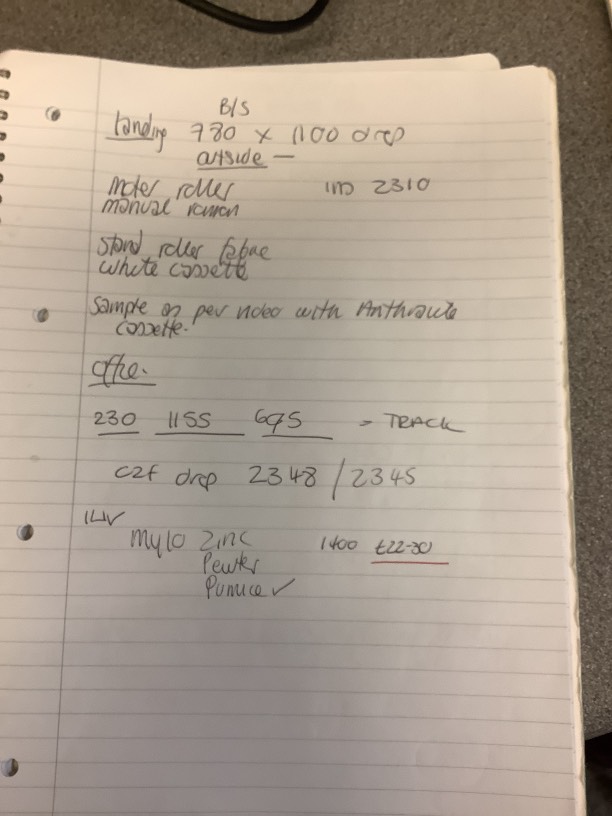 B/S
landing 780 x 1100 drop
outside —
Moter roller
1no 2310
manual
stand roller
white cassette
Sample as per video with Anthracite
cassette.
office.
230 1155 695 = TRACK
c2f drop 2348 / 2345
Mylo Zinc 1400 £22-30
Pewter
Pumice ✓